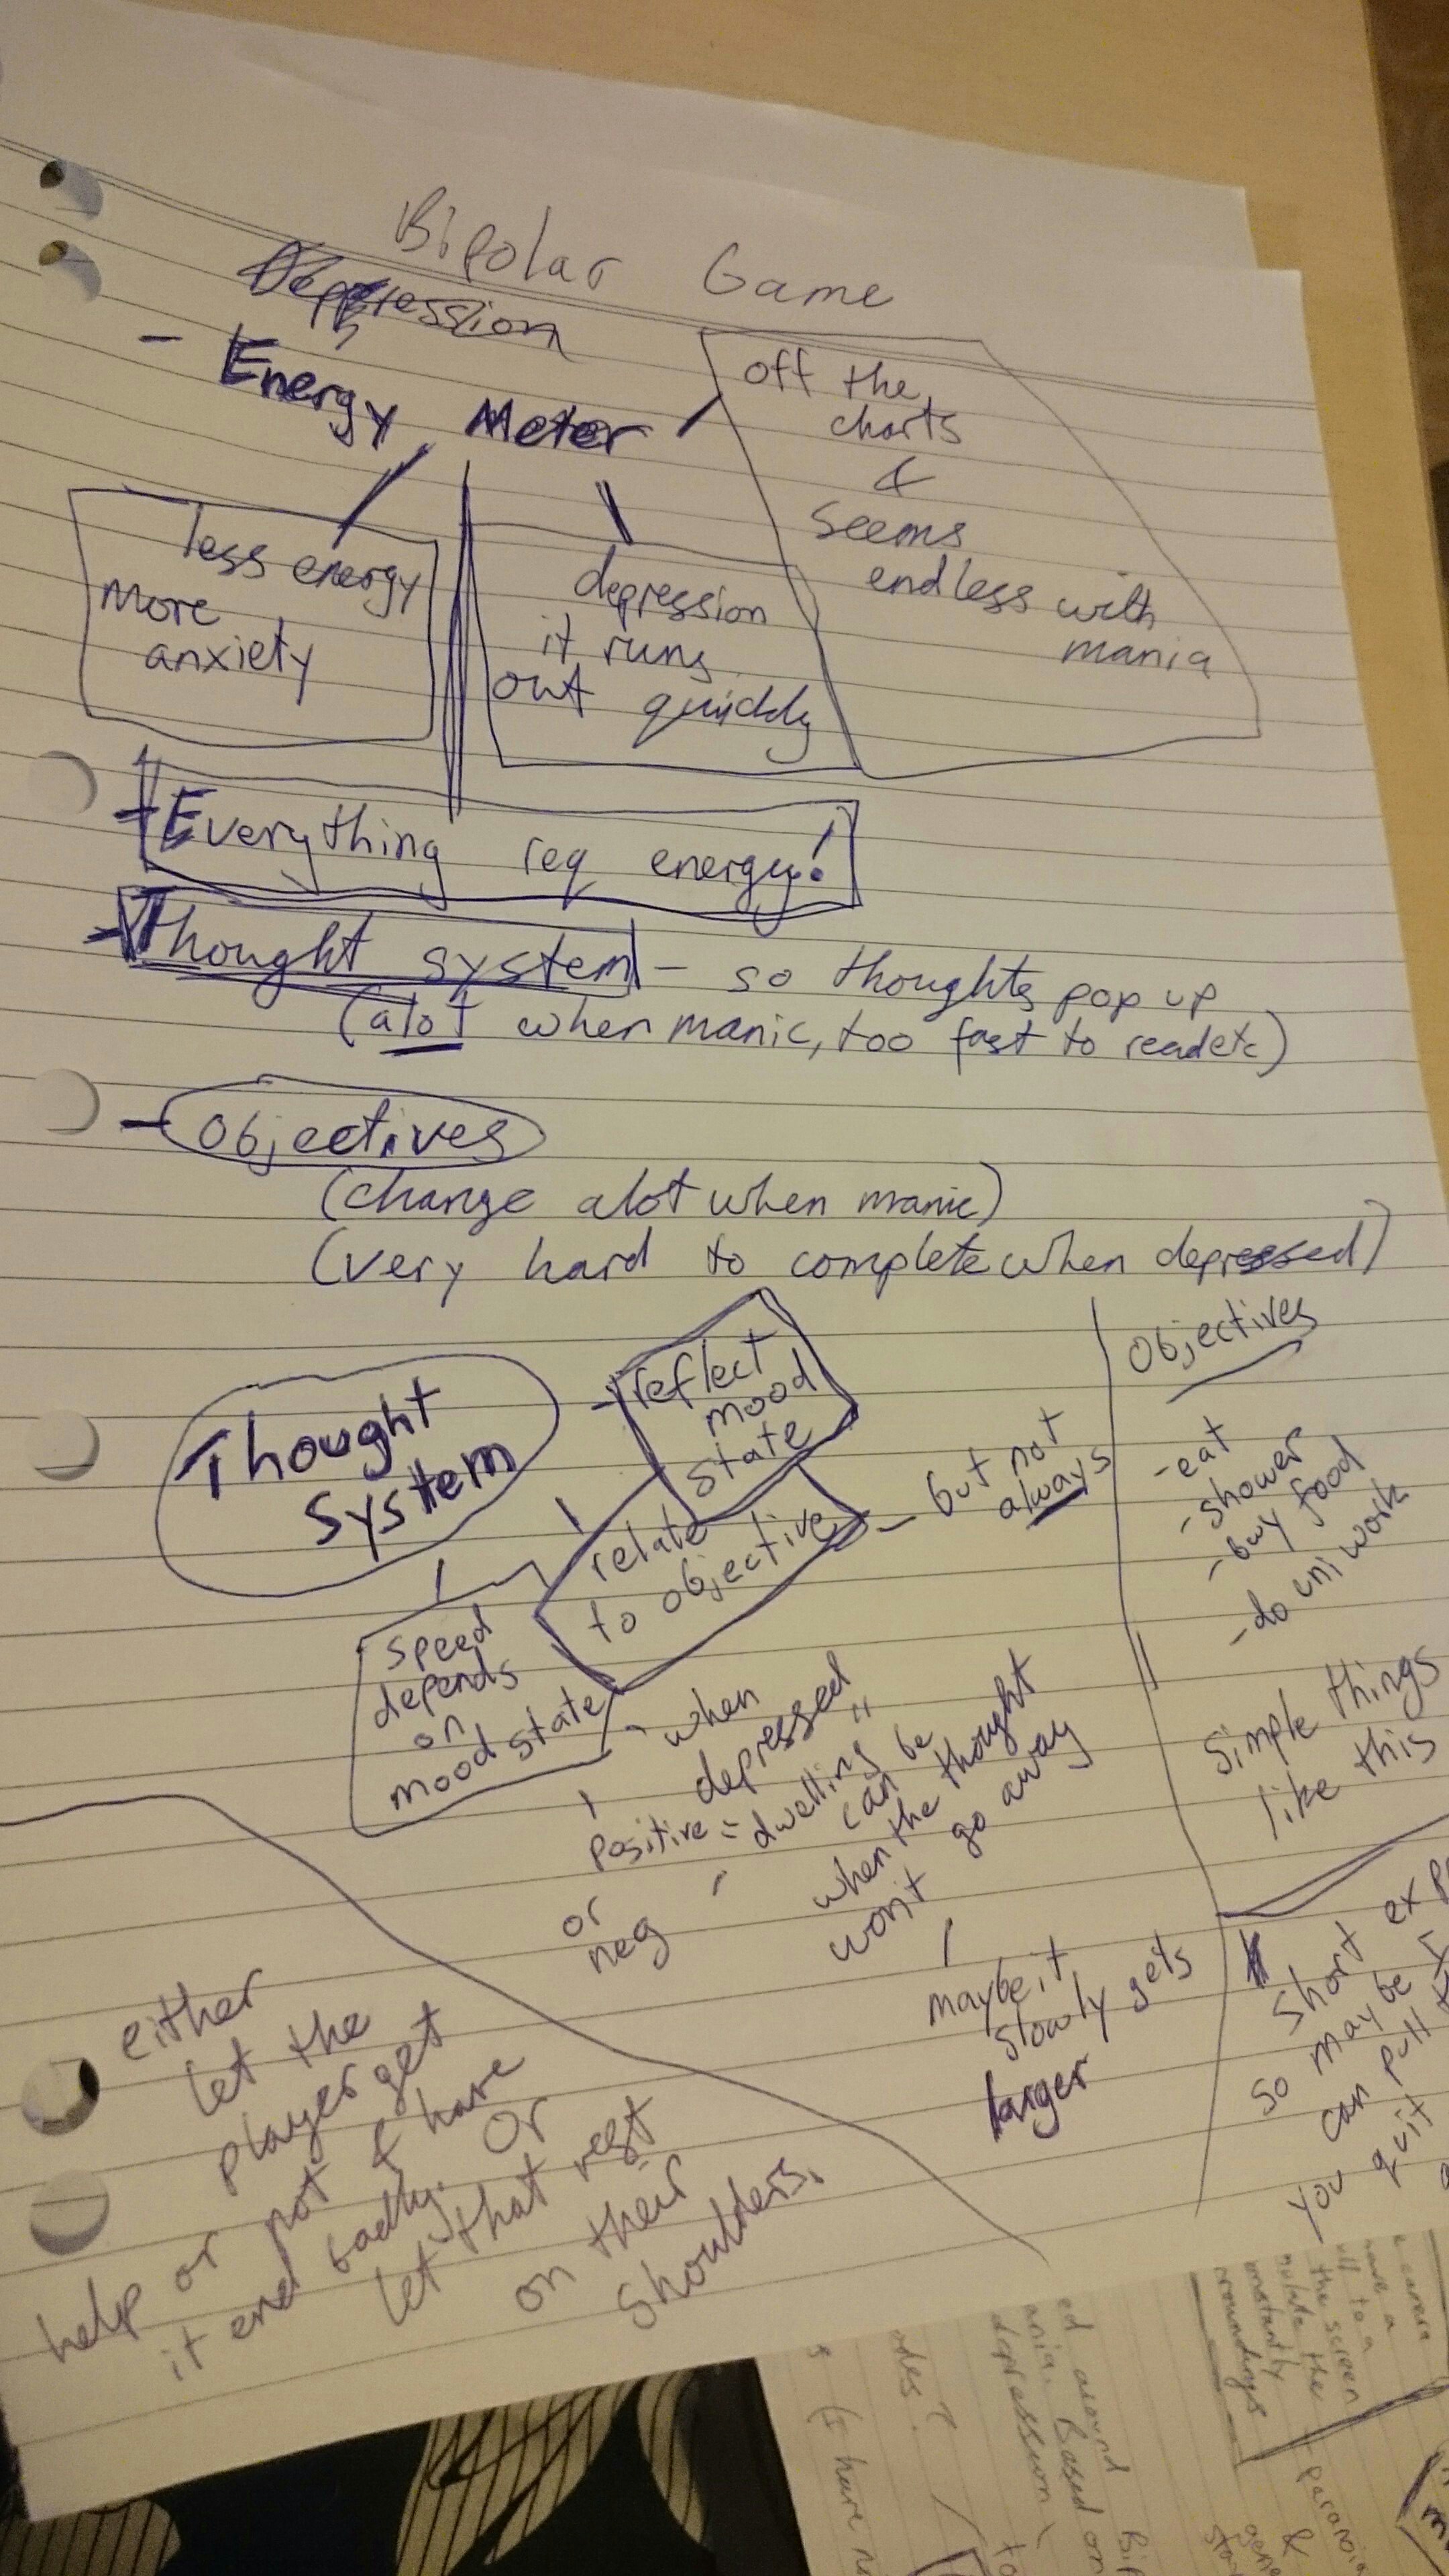 Bipolar Game
Depression
- Energy Meter
off the
charts
&
seems
endless with
mania
less energy
more
anxiety
depression
it runs
out quickly
- Everything req energy!
- Thought system - so thoughts pop up
(alot when manic, too fast to read etc)
- Objectives
(change alot when manic)
(very hard to complete when depressed)
Thought
System
- reflect
mood
state
relate
to objective
- but not
always
speed
depends
on
mood state
- when
depressed
positive =
or
neg
- "dwelling" can be
when the thought
won't go away
maybe it
slowly gets
larger
Objectives
- eat
- shower
- buy food
- do uni work
Simple things
like this
short
so maybe I
can pull
you quit
either
let the
player get
help or not & have
it end badly. Or
let that rest
on their
shoulders.
have a
to a
the screen
the
constantly
surroundings
around
mania. Based on
depression
(I have
&